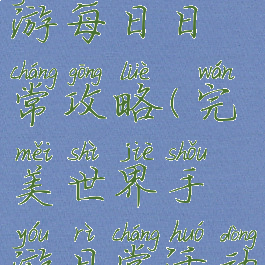 游每日日
cháng gōng lüè wán
常攻略(完
měi shì jiè shǒu
美世界手
yóu rì cháng huó dòng
游日常活动